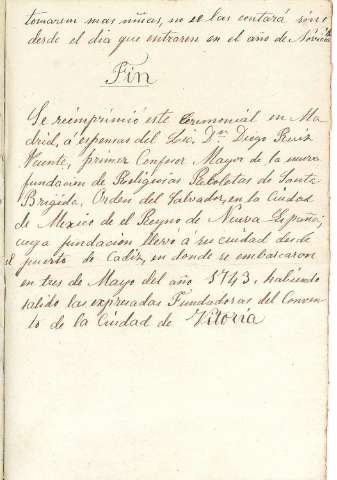 tomaren mas niñas, no se las contará sino
desde el dia que entraren en el año de Noviciado
Fin
Se reimprimió este Ceremonial en Ma-
drid, á espensas del Lic. Dn. Diego Ruiz
Vicente, primer Confesor Mayor de la nueva
fundacion de Religiosas Recoletas de Santa
Brigida, Orden del Salvador, en la Ciudad
de Mexico de el Reyno de Nueva España;
cuya fundacion llevó a su ciudad desde
el puerto de Cadiz, en donde se embarcaron
en tres de Mayo del año 1743, habiendo
salido las expresadas Fundadoras del Conven-
to de la Ciudad de Vitoria